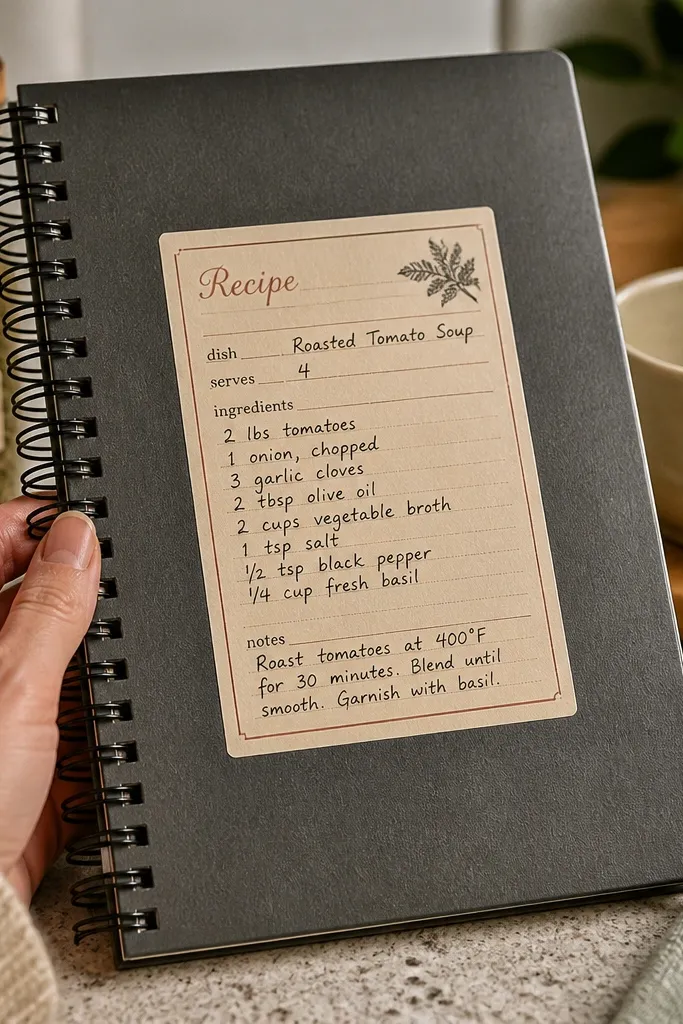 Recipe
dish Roasted Tomato Soup
serves 4
ingredients
2 lbs tomatoes
1 onion, chopped
3 garlic cloves
2 tbsp olive oil
2 cups vegetable broth
1 tsp salt
1/2 tsp black pepper
1/4 cup fresh basil
notes
Roast tomatoes at 400°F
for 30 minutes. Blend until
smooth. Garnish with basil.